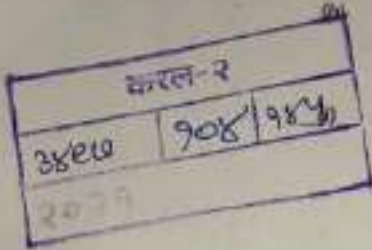 करल-२
३४९७ १०४ १४५
२०११